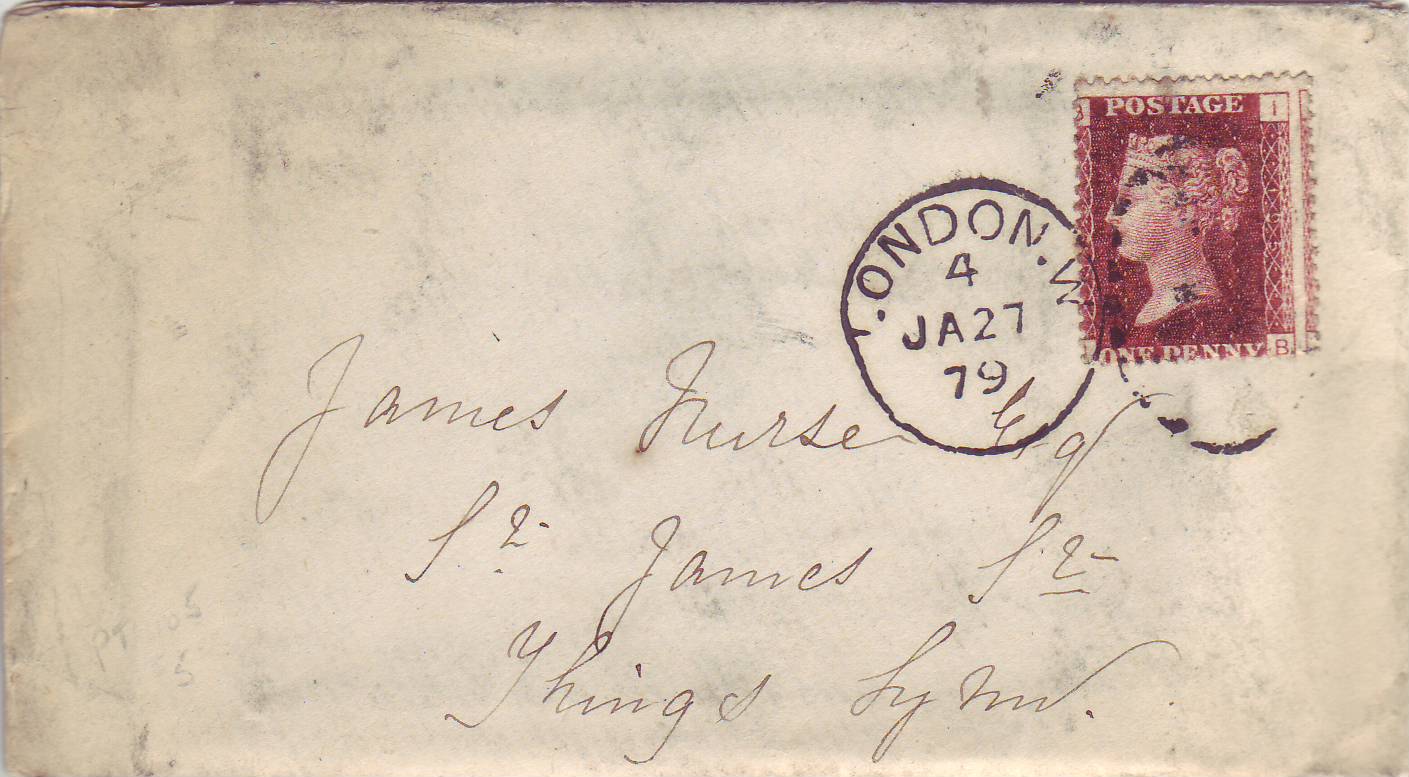 POSTAGE
I
ONE PENNY
B
LONDON.W
4
JA27
79
James Nurse Esq
St James St
Kings Lynn.